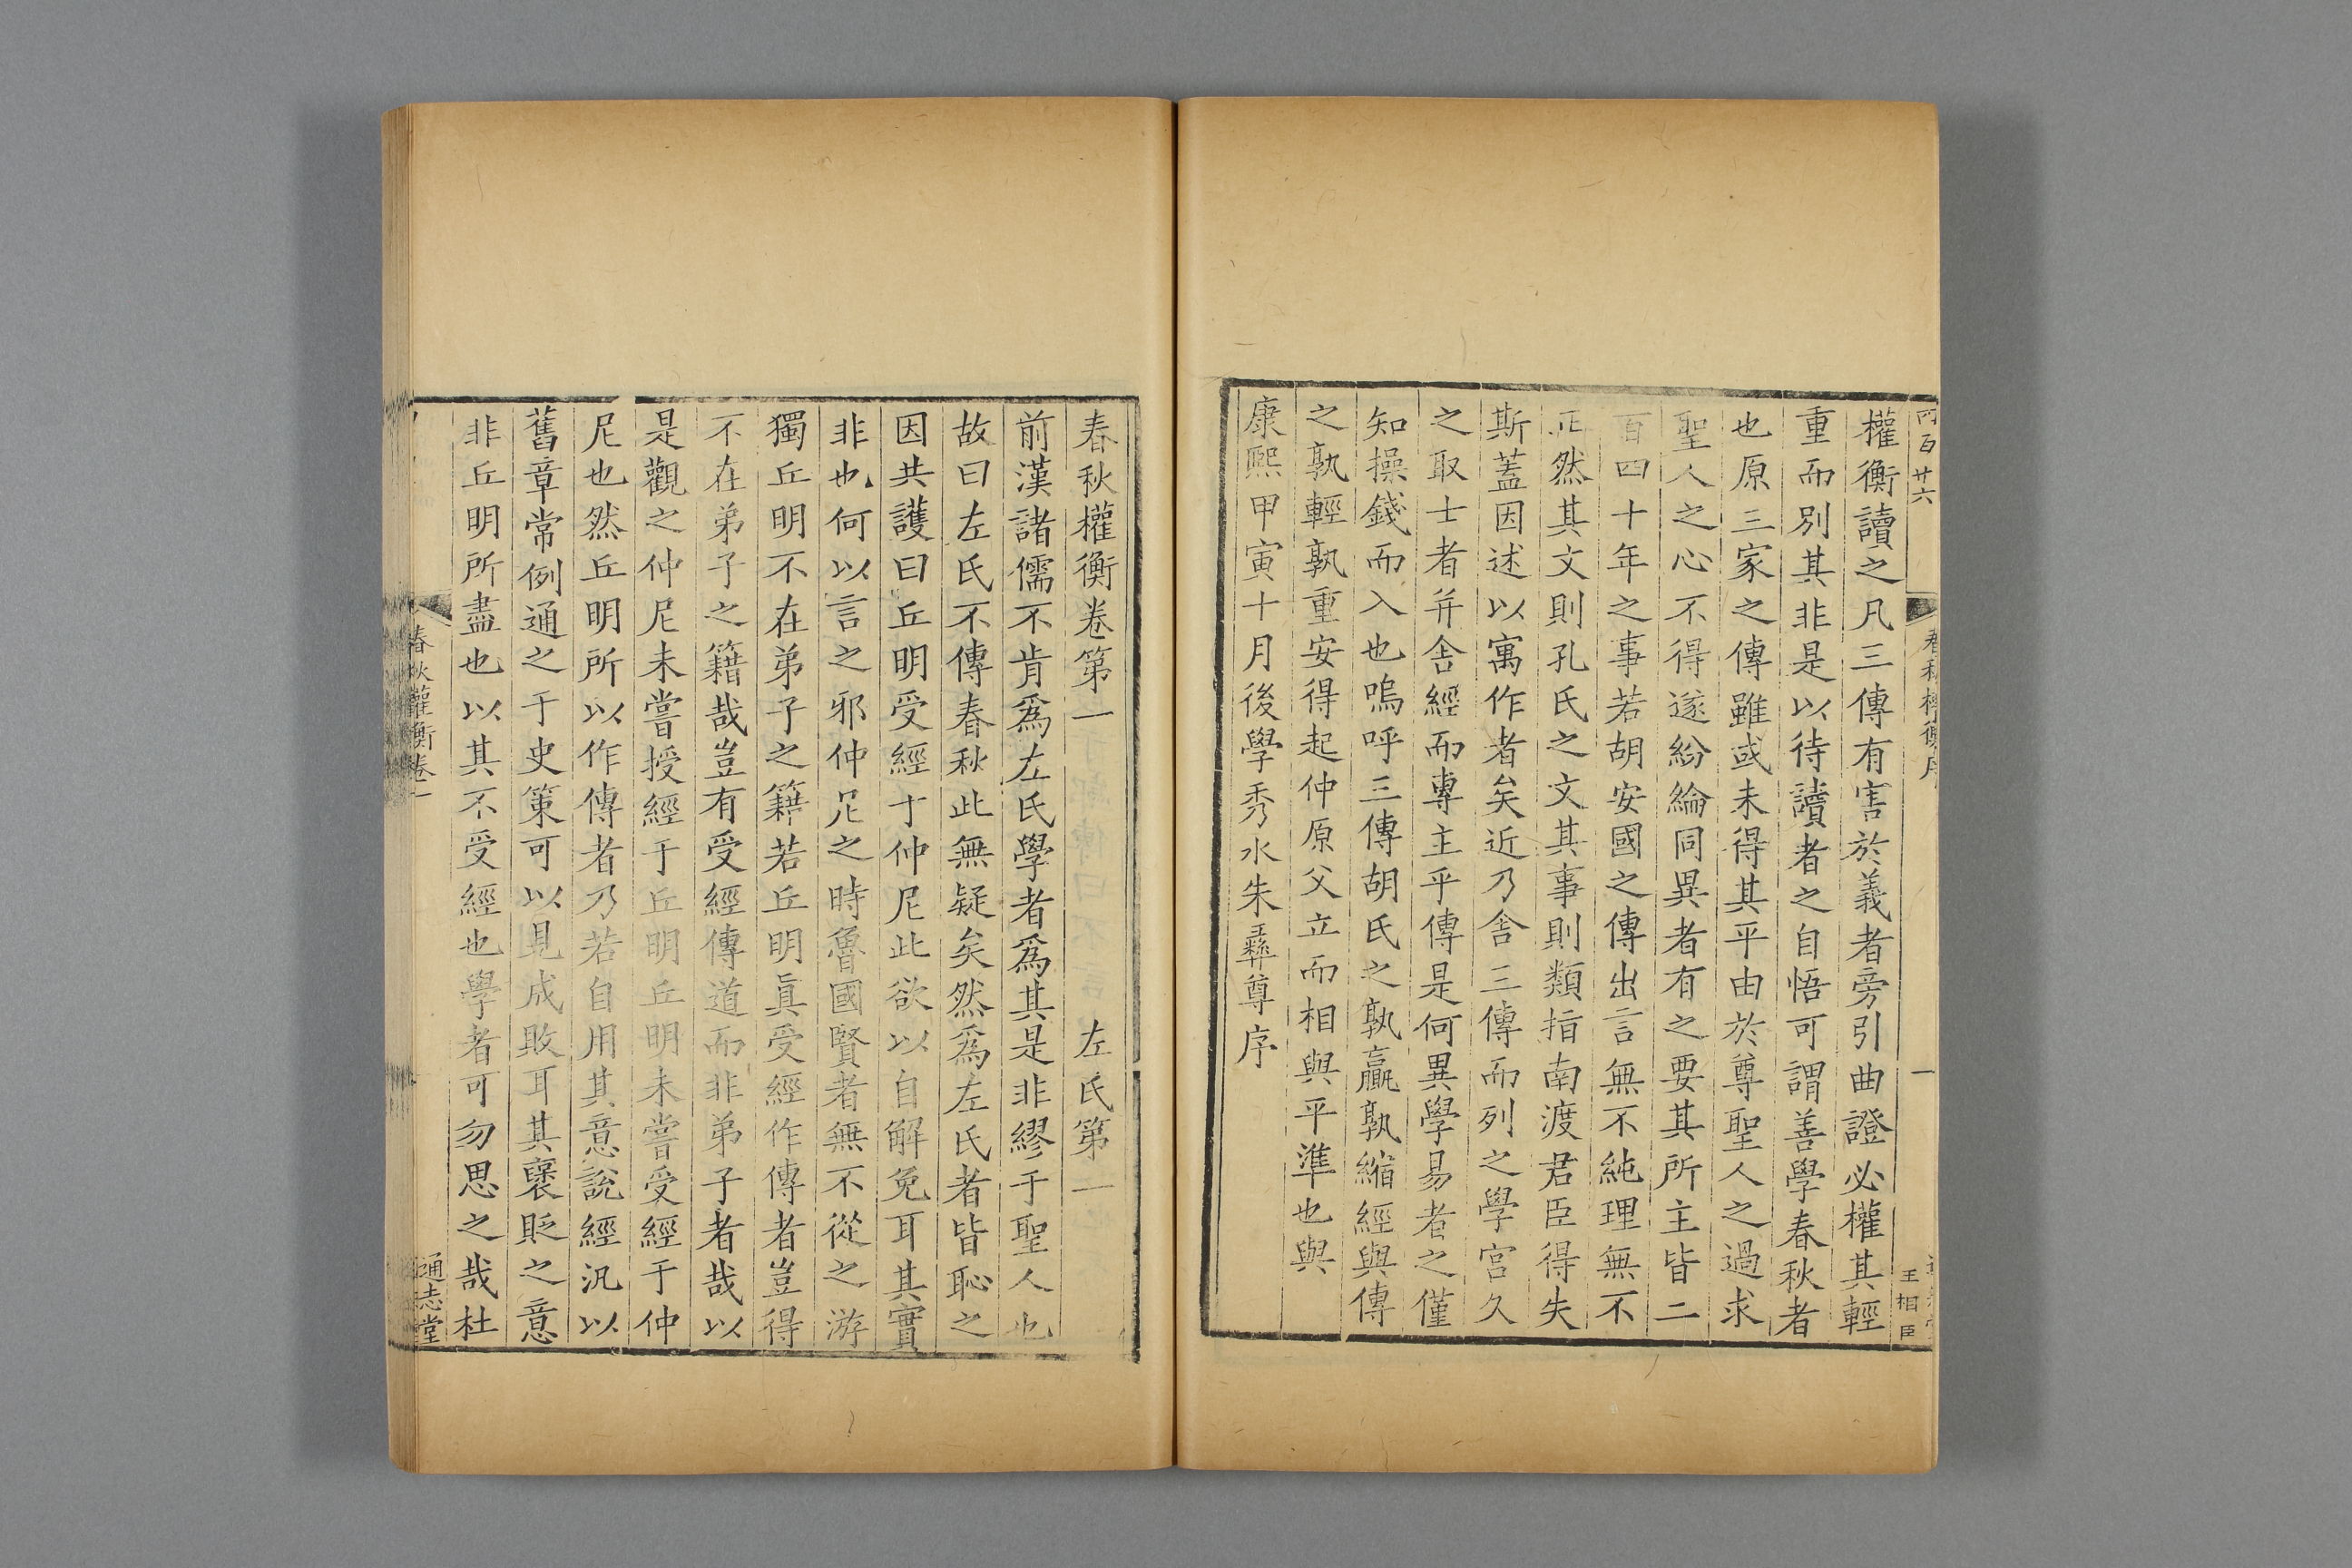 權衡讀之凡三傳有害於義者旁引曲證必權其輕
重而別其非是以待讀者之自悟可謂善學春秋者
也原三家之傳雖或未得其平由於尊聖人之過求
聖人之心不得遂紛綸同異者有之要其所主皆二
百四十年之事若胡安國之傳出言無不純理無不
正然其文則孔氏之文其事則類指南渡君臣得失
斯蓋因述以寓作者矣近乃舍三傳而列之學宮久
之取士者并舍經而專主乎傳是何異學易者之僅
知操錢而入也嗚呼三傳胡氏之孰贏孰縮經與傳
之孰輕孰重安得起仲原父立而相與平準也與
康熙甲寅十月後學秀水朱彞尊序
王相臣
春秋權衡卷第一 左氏第一
前漢諸儒不肯爲左氏學者爲其是非繆于聖人也
故曰左氏不傳春秋此無疑矣然爲左氏者皆恥之
因共護曰丘明受經于仲尼此欲以自解免耳其實
非也何以言之邪仲尼之時魯國賢者無不從之游
獨丘明不在弟子之籍若丘明眞受經作傳者豈得
不在弟子之籍哉豈有受經傳道而非弟子者哉以
是觀之仲尼未嘗授經于丘明丘明未嘗受經于仲
尼也然丘明所以作傳者乃若自用其意說經汎以
舊章常例通之于史策可以見成敗耳其襃貶之意
非丘明所盡也以其不受經也學者可勿思之哉杜
春秋權衡卷一
通志堂